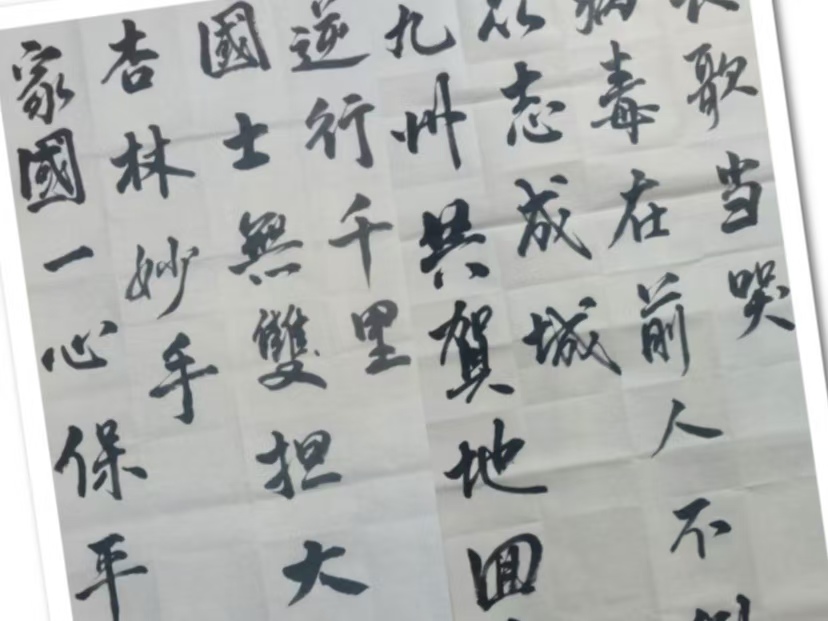 歌当哭
病毒在前人不
志成城
九州共賀地囬
逆行千里
國士無雙担大
杏林妙手
家國一心保平